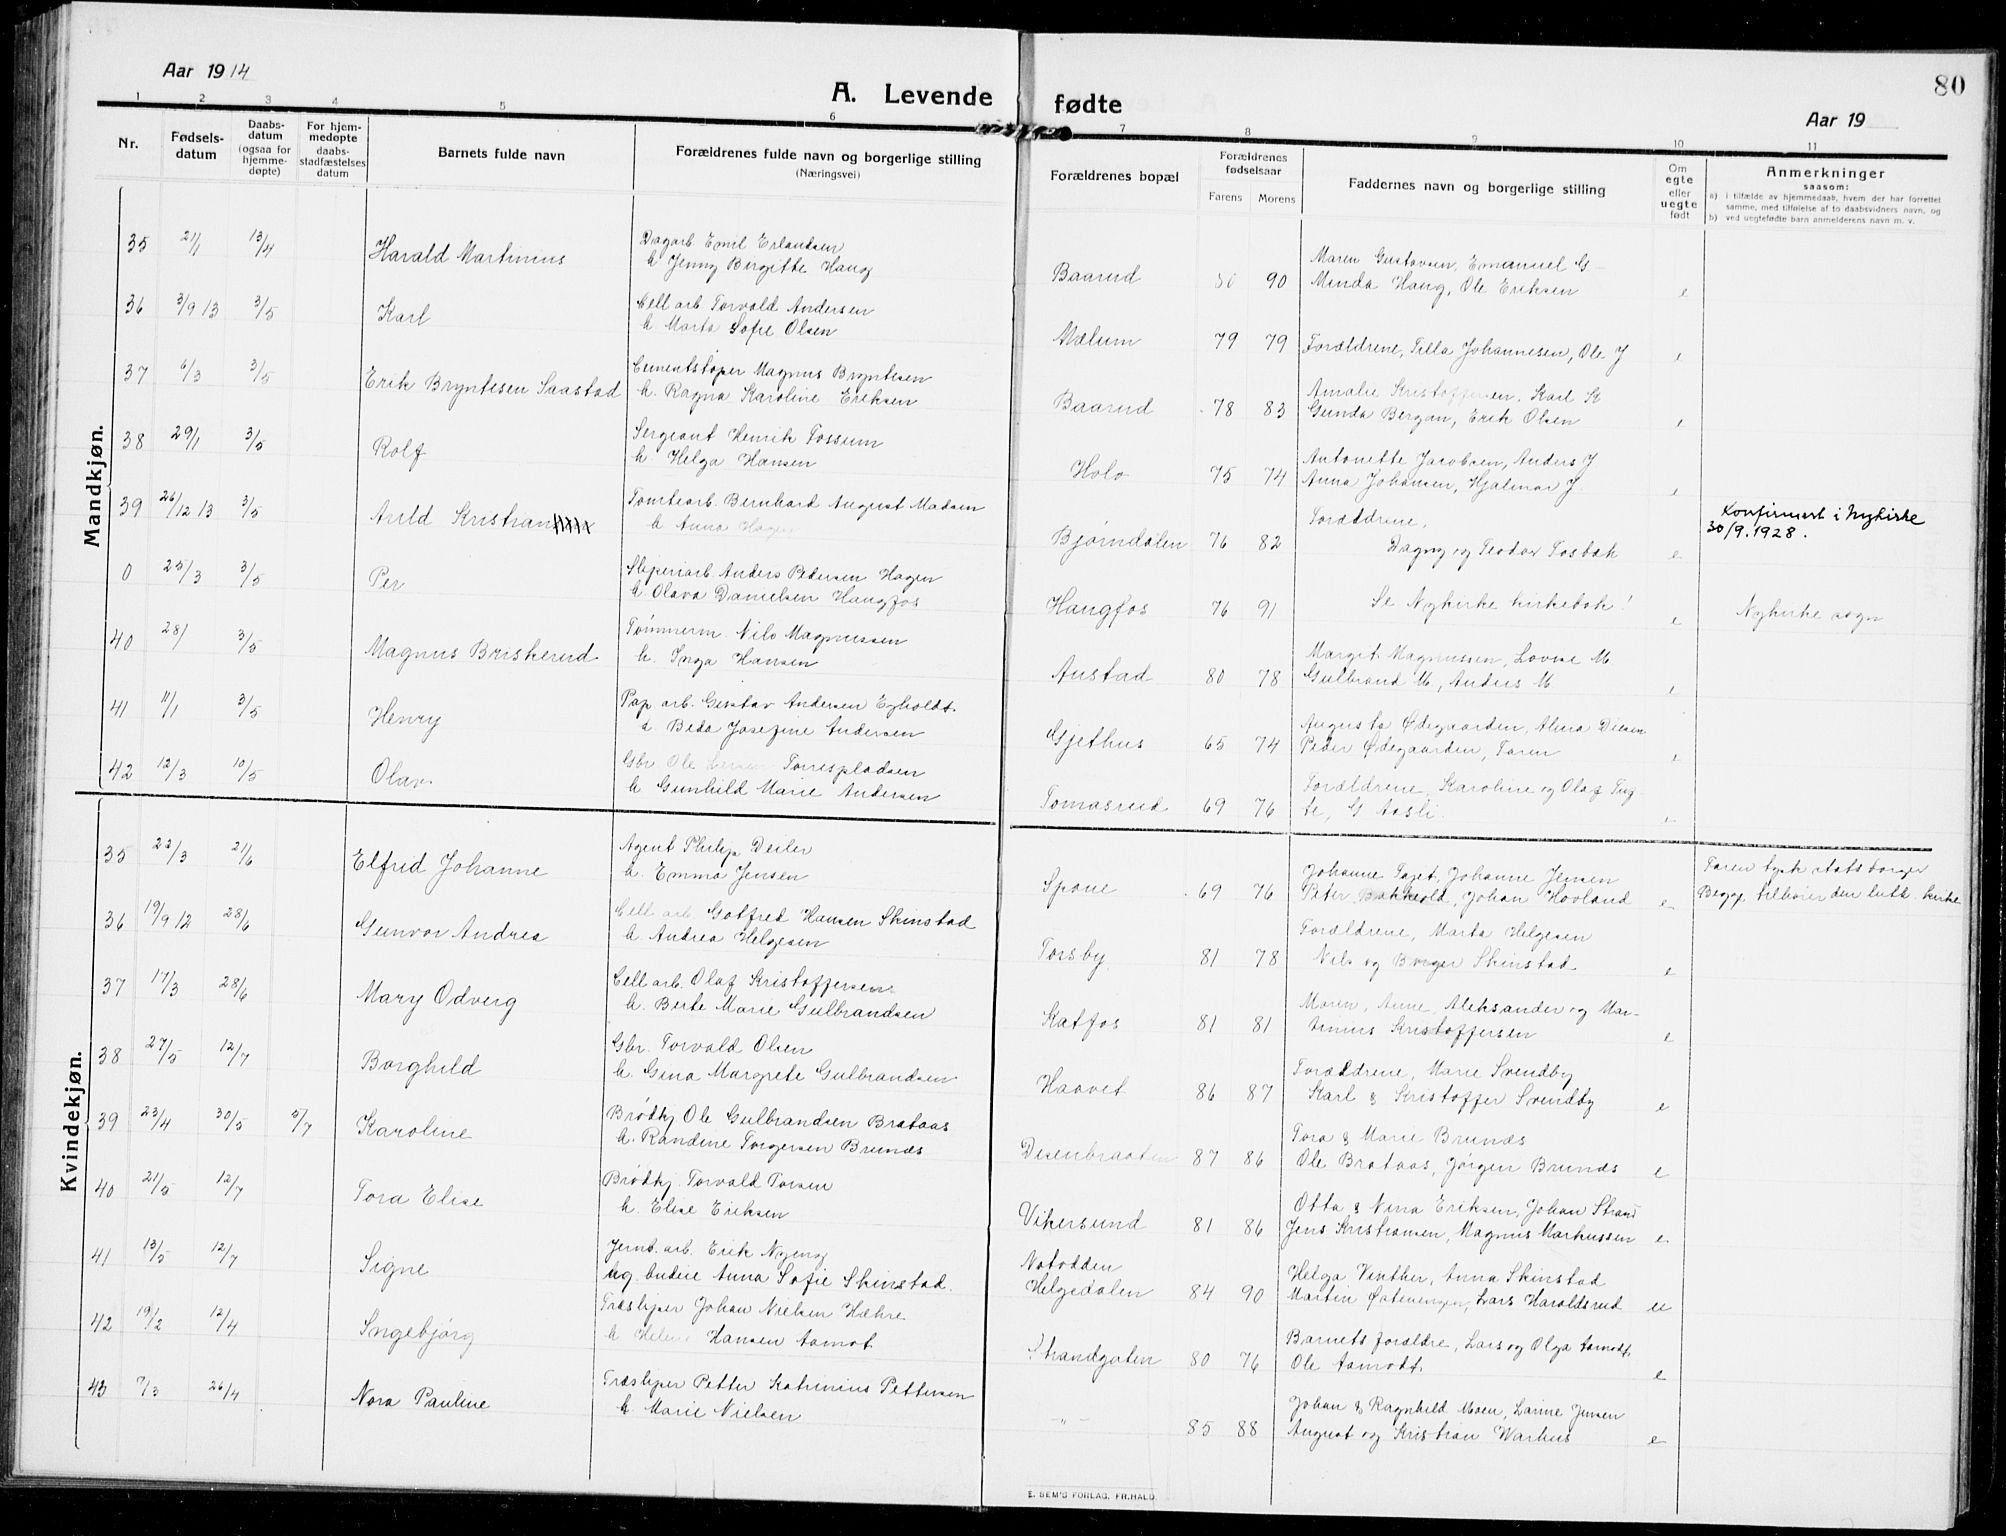 Aar 1914
A. Levende fødte
80
Aar 19
1 2 3 4 5 6 7 8 9 10 11
Nr.
Fødsels-
datum
Daabs-
datum
(ogsaa for
hjemme-
døpte)
For hjem-
medøpte
daabs-
stadfæstelses
datum
Barnets fulde navn
Forældrenes fulde navn og borgerlige stilling
(Næringsvei)
Forældrenes bopæl
Forældrenes
fødselsaar
Farens Morens
Faddernes navn og borgerlige stilling
Om
egte
eller
uegte
født
Anmerkninger
saasom:
a) i tilfælde av hjemmedaab, hvem der har forrettet
samme, med tilføielse af to daabsvidners navn, og
b) ved uegtefødte barn anmelderens navn m. v.
Mandkjøn.
35 21/1 13/4 Harald Martinius
Dagarb Emil Erlandsen
h Jenny Birgitte Haug
Baarud 80 90
Maren Gustavsen, Emanuel G
Minda Haug, Ole Eriksen e
36 3/9 13 3/5 Karl
Cell arb Torvald Andersen
h Marta Sofie Olsen
Mælum 79 79
Forældrene, Tilla Johannesen, Ole J e
37 6/3 3/5 Erik Bryntesen Saastad
Cementstøper Magnus Bryntesen
h. Ragna Karoline Eriksen
Baarud 78 83
Amalie Kristoffersen, Karl K
Gunda Bergan, Erik Olsen e
38 29/1 3/5 Rolf
Sergeant Henrik Fossum
h. Helga Hansen
Holo 75 74
Antonette Jacobsen, Anders J
Anna Johansen, Hjalmar J. e
39 26/12 13 3/5 Arild Kristian
Tomtearb. Bernhard August Madsen
h Anna Hagen
Bjørndalen 76 82
Forældrene,
Dagny og Teodor Fosbæk e
Konfirmert i Nykirke
30/9.1928.
0 25/3 3/5 Per
Sliperiarb. Anders Pedersen Hagen
h. Olava Danielsen Haugfos
Haugfos 76 91
Se Nykirke kirkebok! e
Nykirke sogn
40 28/ 3/5 Magnus Briskerud
Tømmerm. Nils Magnussen
h. Inga Hansen
Austad 80 78
Margit Magnussen, Lovise M.
Gulbrand M, Anders M e
41 11/1 3/5 Henry
Pap arb. Gustav Andersen Egholdt
h Beda Josefine Andersen
Gjethus 65 74
Augusta Ødegaarden, Alma Diesen
Peder Ødegaarden, Faren e
42 12/3 10/5 Olav
Gbr Ole Torrespladsen
h Gunhild Marie Andersen
Tomasrud 69 76
Forældrene, Karoline og Olaf Tug-
te, G Aasli. e
Kvindekjøn.
35 22/3 21/6 Elfrid Johanne
Agent Philip Deiler
h. Emma Jensen
Spone 69 76
Johanne Tajet, Johanne Jensen
Peter Bakkeold, Johan Hovland e
Faren tysk statsborger
Begge tilhører den luth. kirke
36 19/9 12 28/6 Gunvor Andrea
Cell arb. Gotfred Hansen Skinstad
h Andrea Helgesen
Torsby 81 78
Forældrene, Marta Helgesen
Nils og Borger Skinstad e
37 17/3 28/6 Mary Odverg
Cell arb. Olaf Kristoffersen
h. Berte Marie Gulbrandsen
Katfos 81 81
Maren, Anne, Aleksander og Mar-
tinius Kristoffersen e
38 27/5 12/7 Borghild
Gbr. Torvald Olsen
h. Gina Margrete Gulbrandsen
Haavet 86 87
Forældrene, Marie Svendby
Karl & Kristoffer Svendby e
39 23/4 30/5 5/7 Karoline
Brødkj Ole Gulbrandsen Brataas
h. Randine Torgersen Brunæs
Disenbraaten 87 86
Tora & Marie Brunæs
Ole Brataas, Jørgen Brunæs e
40 21/5 12/7 Tora Elise
Brødkj. Torvald Torsen
h. Elise Eriksen
Vikersund 81 86
Otta & Nina Eriksen, Johan Strand
Jens Kristiansen, Magnus Markussen e
41 13/5 12/7 Signe
Jernb. arb. Erik Nyeng
Ug. budeie Anna Sofie Skinstad.
Notodden
Helgedalen 84 90
Helga Vinther, Anna Skinstad
Martin Østenengen, Lars Haraldsrud u
42 19/2 12/4 Ingebjørg
Træsliper Johan Nielsen Hæhre
h Helene Hansen Aamot
Strandgaten 80 76
Barnets forældre, Lars og Olga Aamodt,
Ole Aamodt. e
43 7/3 26/4 Nora Pauline
Træsliper Petter Katrinius Pettersen
h. Marie Nielsen
– " – 85 88
Johan & Ragnhild Moen, Larine Jensen
August og Kristian Warhus e
E. SEM'S FORLAG, FR.HALD.